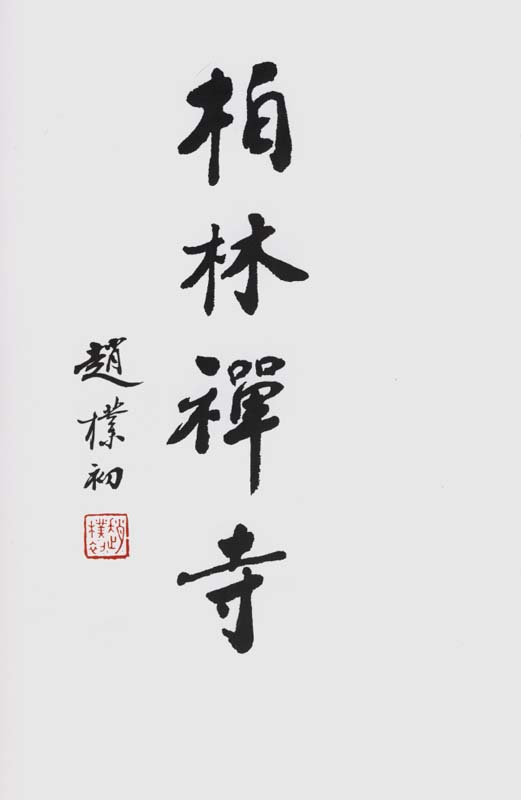 柏林禪寺
趙樸初
趙樸初